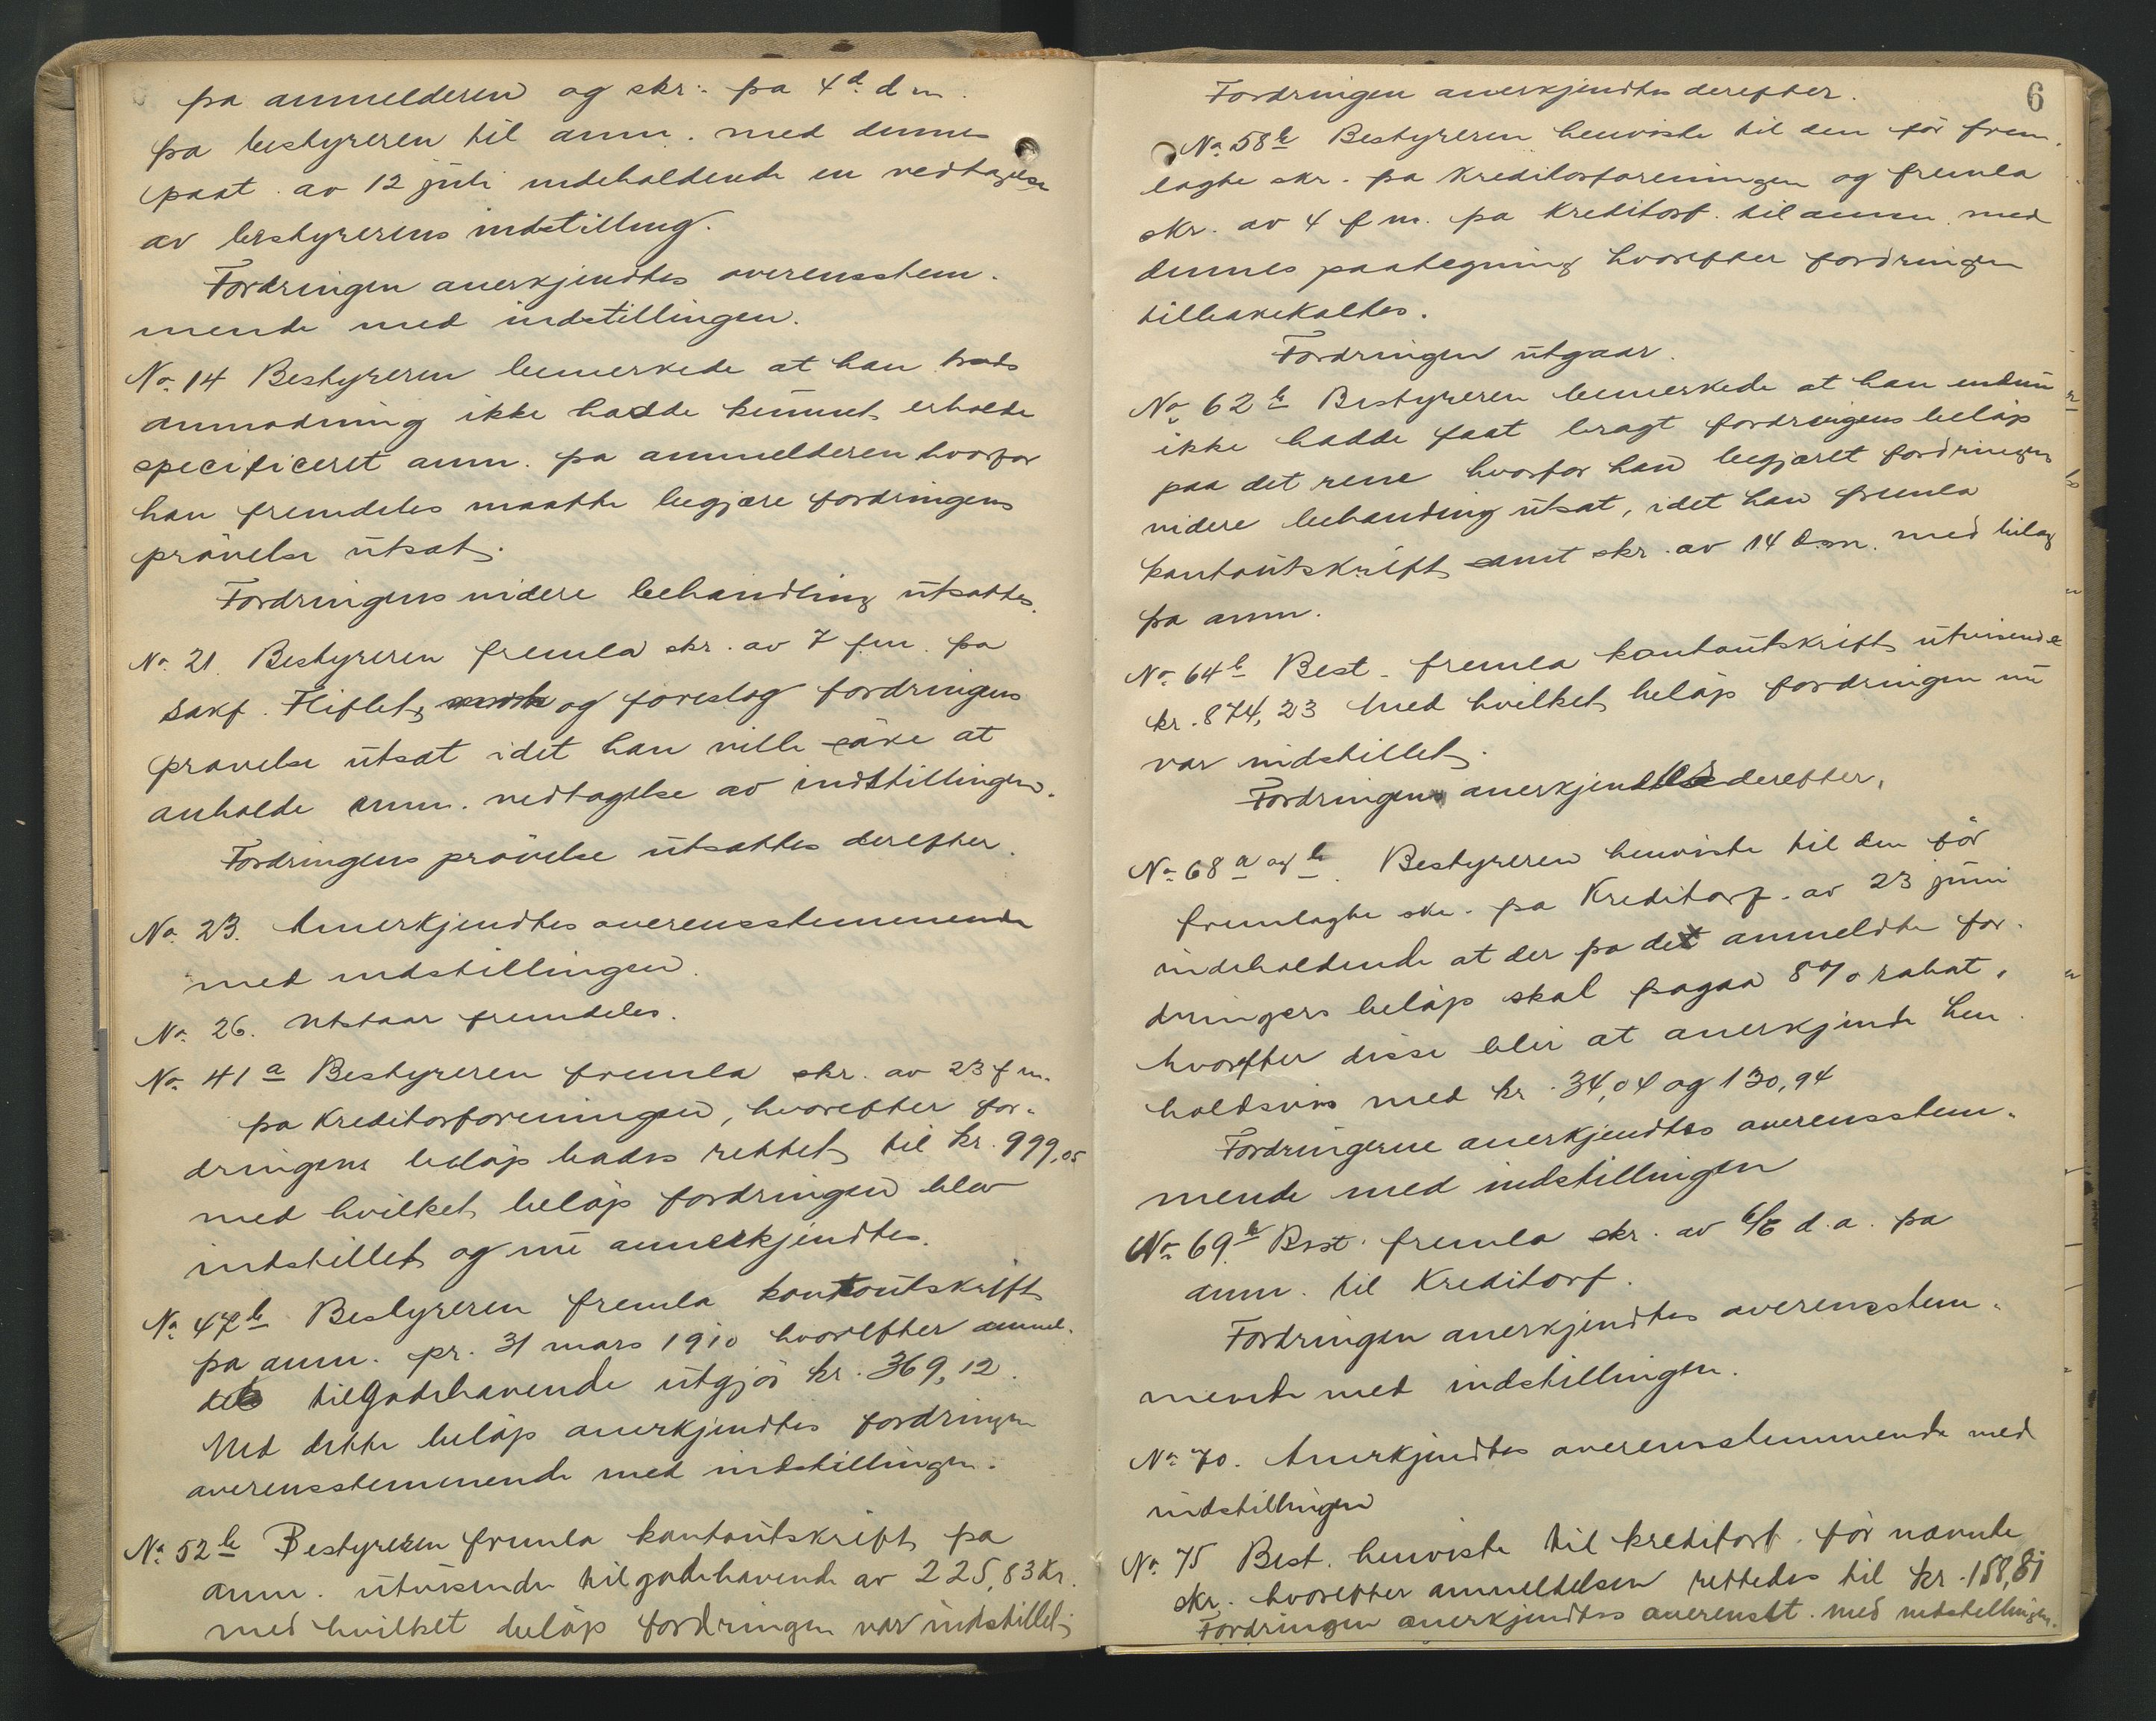 fra anmelderen og skr. fra 4d. d m.
fra bestyreren til anm. med dennes
paat. av 12 juli indeholdende en vedtagelse
av bestyrerens indstilling.
Fordringen anerkjendtes overensstem-
mende med indstillingen.
No. 14 Bestyreren bemerkede at han trods
anmodning ikke hadde kunnet erholde
specificeret anm. fra anmelderen hvorfor
han fremdeles maatte begjære fordringens
prøvelse utsat.
Fordringens videre behandling utsattes.
No. 21. Bestyreren fremla skr. av 7 f m. fra
sakf. Fliflet, og foreslog fordringens
prøvelse utsat idet han ville søke at
anholde anm. vedtagelse av indstillingen.
Fordringens prøvelse utsattes derefter.
No. 23. Anerkjendtes overensstemmende
med indstillingen.
No. 26. Utstaar fremdeles.
No. 41 a Bestyreren fremla skr. av 23 f m.
fra Kreditorforeningen, hvorefter for-
dringens beløp bades rettet til kr. 999,05
med hvilket beløp fordringen blev
indstillet og nu annerkjendtes.
No. 47 b Bestyreren fremla kontoutskrift
fra anm. pr. 31 mars 1910 hvorefter anmel-
dtes tilgodehavende utgjør kr. 369,12.
Med dette beløp anerkjendtes fordringen
overensstemmende med indstillingen.
No. 52 b Bestyreren fremla kontoutskrift fra
anm. utvisende tilgodehavende av 225,83 kr.
med hvilket beløp fordringen var indstillet.
6
Fordringen anerkjendtes derefter.
No. 58 b Bestyreren henviste til den før frem-
lagte skr. fra Kreditorforeningen og fremla
skr. av 4 f m. fra Kreditorf. til anm. med
dennes paategning hvorefter fordringen
tilbakekaltes.
Fordringen utgaar.
No. 62 b Bestyreren bemerkede at han endnu
ikke hadde faat bragt fordringens beløp
paa det rene hvorfor han begjæret fordringens
videre behandling utsat, idet han fremla
kontoutskrift samt skr. av 14 d.m. med bilag
fra anm.
No. 64 b Best. fremla kontoutskrift utvisende
kr. 874,23 Med hvilket beløp fordringen nu
var indstillet.
Fordringens anerkjendtes derefter.
No. 68 a og b. Bestyreren henviste til den før
fremlagte skr. fra Kreditorf. av 23 juni
indeholdende at der fra det anmeldte for-
dringers beløp skal fragaa 8% rabat,
hvorefter disse blir at anerkjende hen-
holdsvis med kr. 34,04 og 130,94
Fordringerne anerkjendtes overensstem-
mende med indstillingen
No. 69 b Best. fremla skr. av 6/6 d.a. fra
anm. til Kreditorf.
Fordringen anerkjendtes overensstem-
mende med indstillingen.
No. 70. Anerkjendtes overensstemmende med
indstillingen
No. 75 Best. henviste til kreditorf. før nævnte
skr. hvorefter anmeldelsen rettedes til kr. 158,81
Fordringen anerkjendtes overenst. med indstillingen.